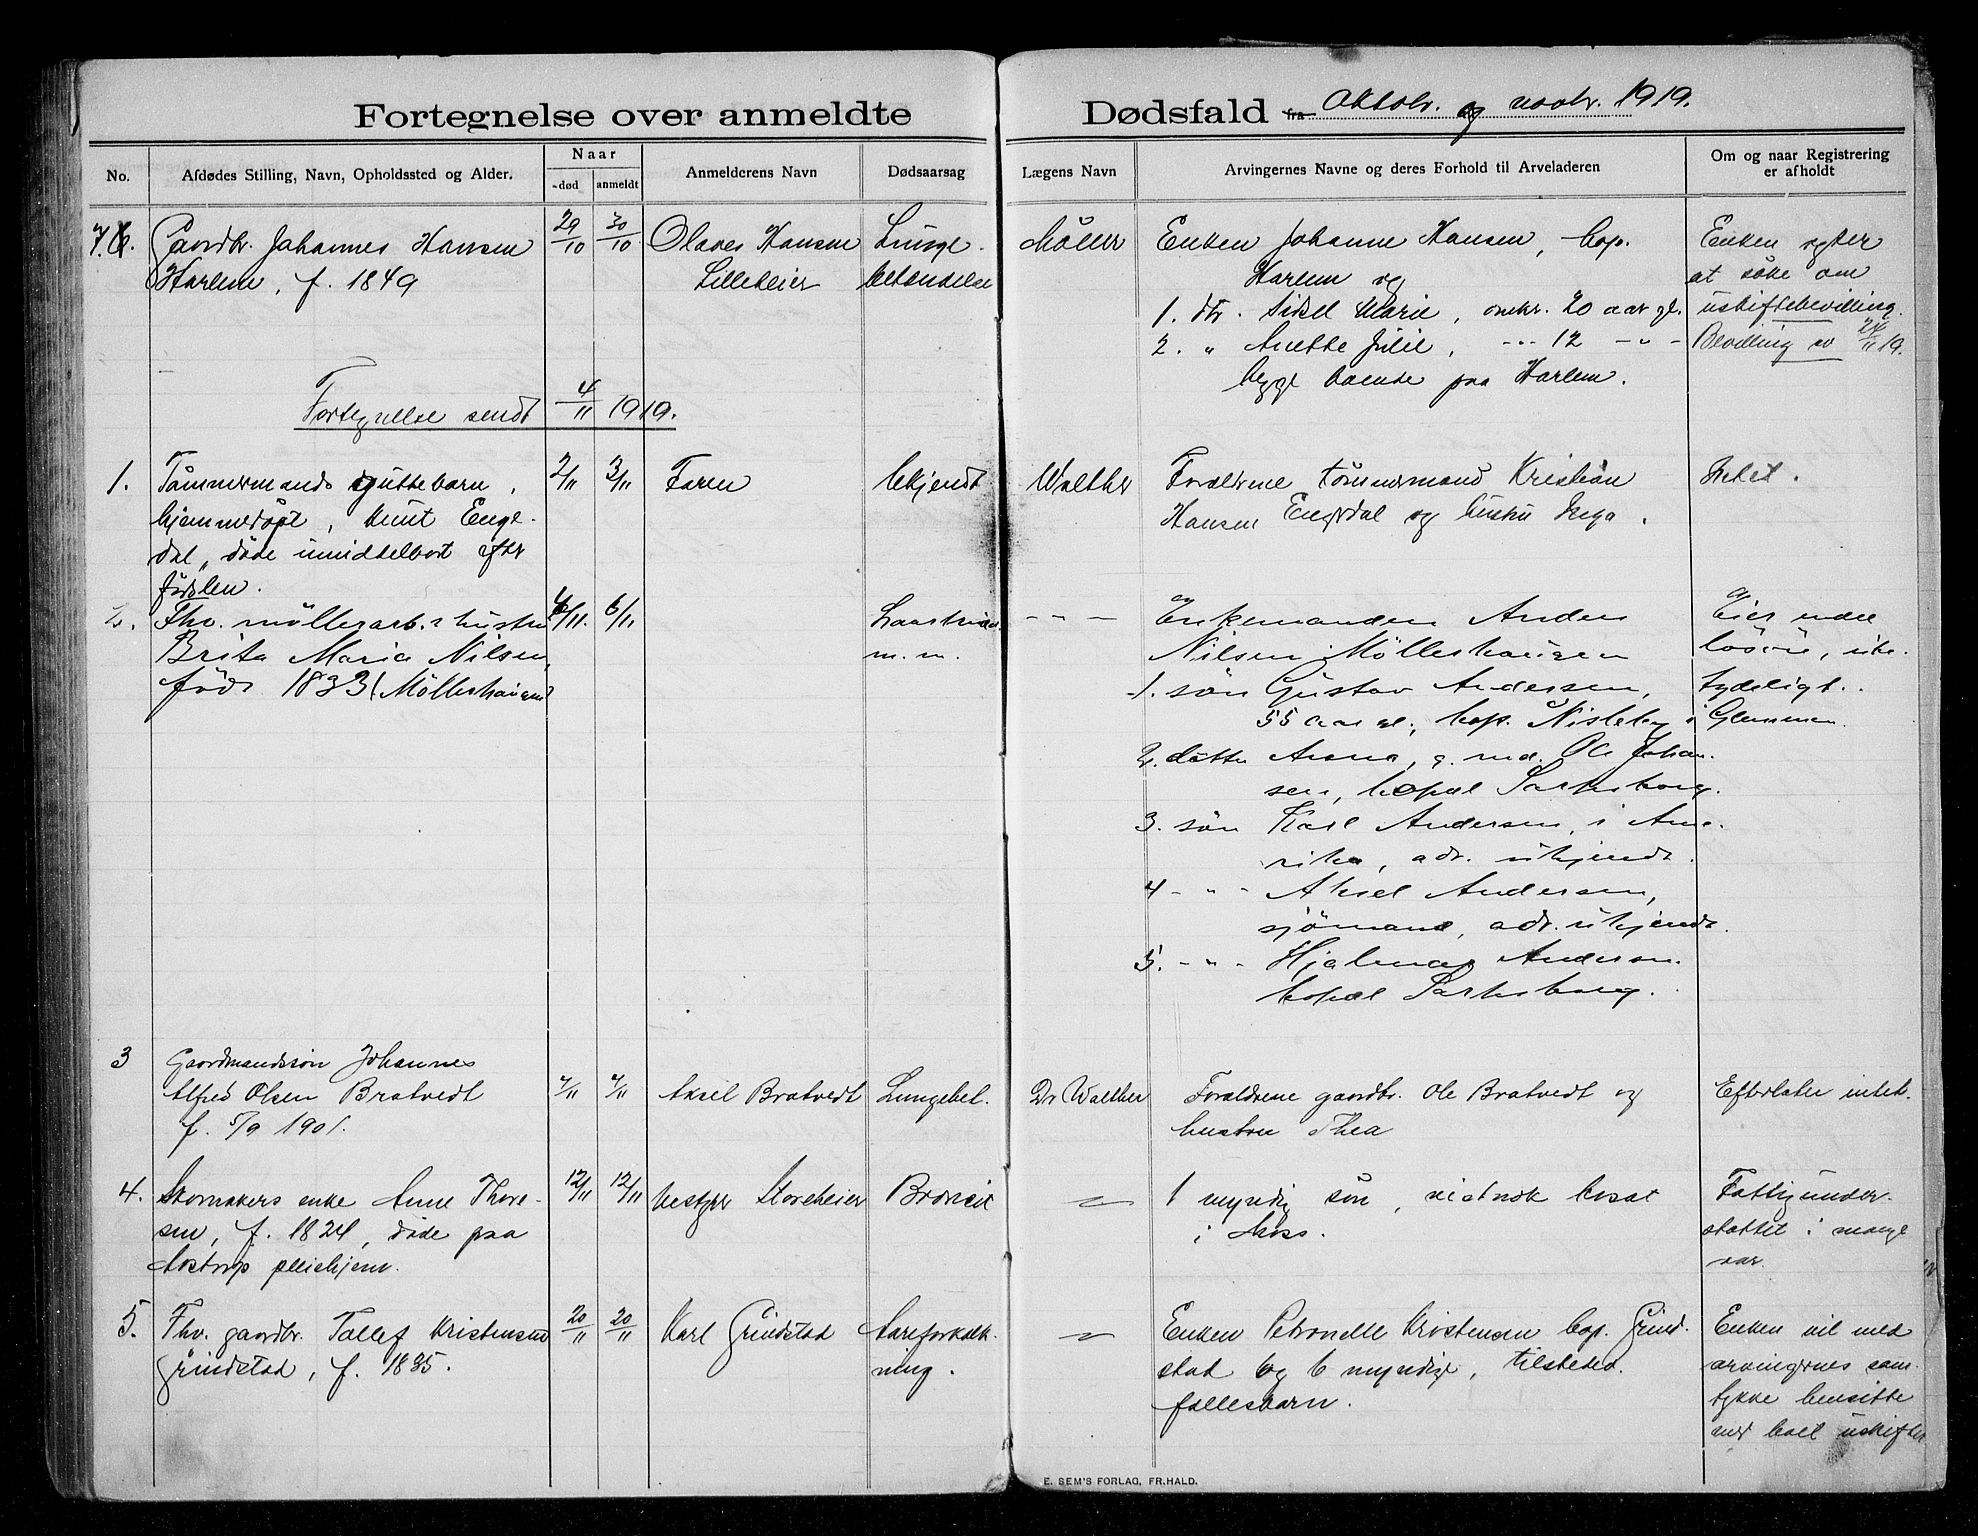 Fortegnelse over anmeldte Dødsfald fra Oktobr. og novbr. 1919.
No. Afdødes Stilling, Navn, Opholdssted og Alder. Naar død anmeldt Anmelderens Navn Dødsaarsag Lægens Navn Arvingernes Navne og deres Forhold til Arveladeren Om og naar Registrering er afholdt
7. Gaardbr. Johannes Hansen
Harlem, f. 1849
29/10 30/10
Olaves Hansen
Lilleheier
Lunge-
betændelse
Møller
Enken Johanne Hansen, bop.
Harlem og
1. dtr. Sisel Marie, omkr. 20 aar gl.
2. " Anette Julie, --- 12 - " -
begge boende paa Harlem.
Enken agter
at søke om
uskiftebevilling.
Bevilling av 24/11 19.
Fortegnelse sendt 4/11 1919.
1. Tømmermands guttebarn,
hjemmedøpt, Knut Enge-
dal, døde umiddelbart efter
fødslen.
2/11 3/11
Faren
Ukjendt
Walther
Forældrene tømmermand Kristian
Hansen Engedal og hustru Inga.
Intet.
2. Fhv. møllerarb.s hustru
Brita Maria Nilsen,
født 1833 (Møllerhaugen)
6/11. 6/11
m.m.
- - -
Enkemanden Anders
Nilsen Møllerhaugen
1. søn Gustav Andersen,
55 aar gl., bop. Nisleby i Glemmen.
2. datter Anna, g. md. Ole Johan-
sen, bopæl Sarpsborg.
3. søn Karl Andersen, i Ame-
rika, adr. ukjendt.
4 - " - Aksel Andersen,
sjømand, adr. ukjendt.
5. - " - Hjalmar Andersen.
bopæl Sarpsborg.
Eier endel
løsøre, ube-
tydeligt.
3 Gaardmandssøn Johannes
Alfred Olsen Bratvedt
f. 5/9 1901.
7/11 7/11
Aksel Bratvedt
Lungebet.
Dr Walther
Forældrene gaardbr. Ole Bratvedt og
hustru Thea
Efterlater intet.
4. Skomakers enke Anne Thore-
sen, f. 1824, døde paa
pleiehjem.
12/11 12/11
bestyrer Storeheier
- " -
1 myndig søn, vistnok bosat
i Moss.
Fattigunder-
støttet i mange
aar.
5. Fhv. gaardbr. Tollef Kristensen
Grindstad, f. 1835.
20/11 20/11
Karl Grindstad
Aareforkalk-
ning.
- " -
Enken Petronelle Kristensen bop. Grind-
stad og 6 myndige, tilstedev.
fællesbarn.
Enken vil med
arvingernes sam-
tykke hensitte
med boet uskiftet
E. SEM'S FORLAG, FR.HALD.